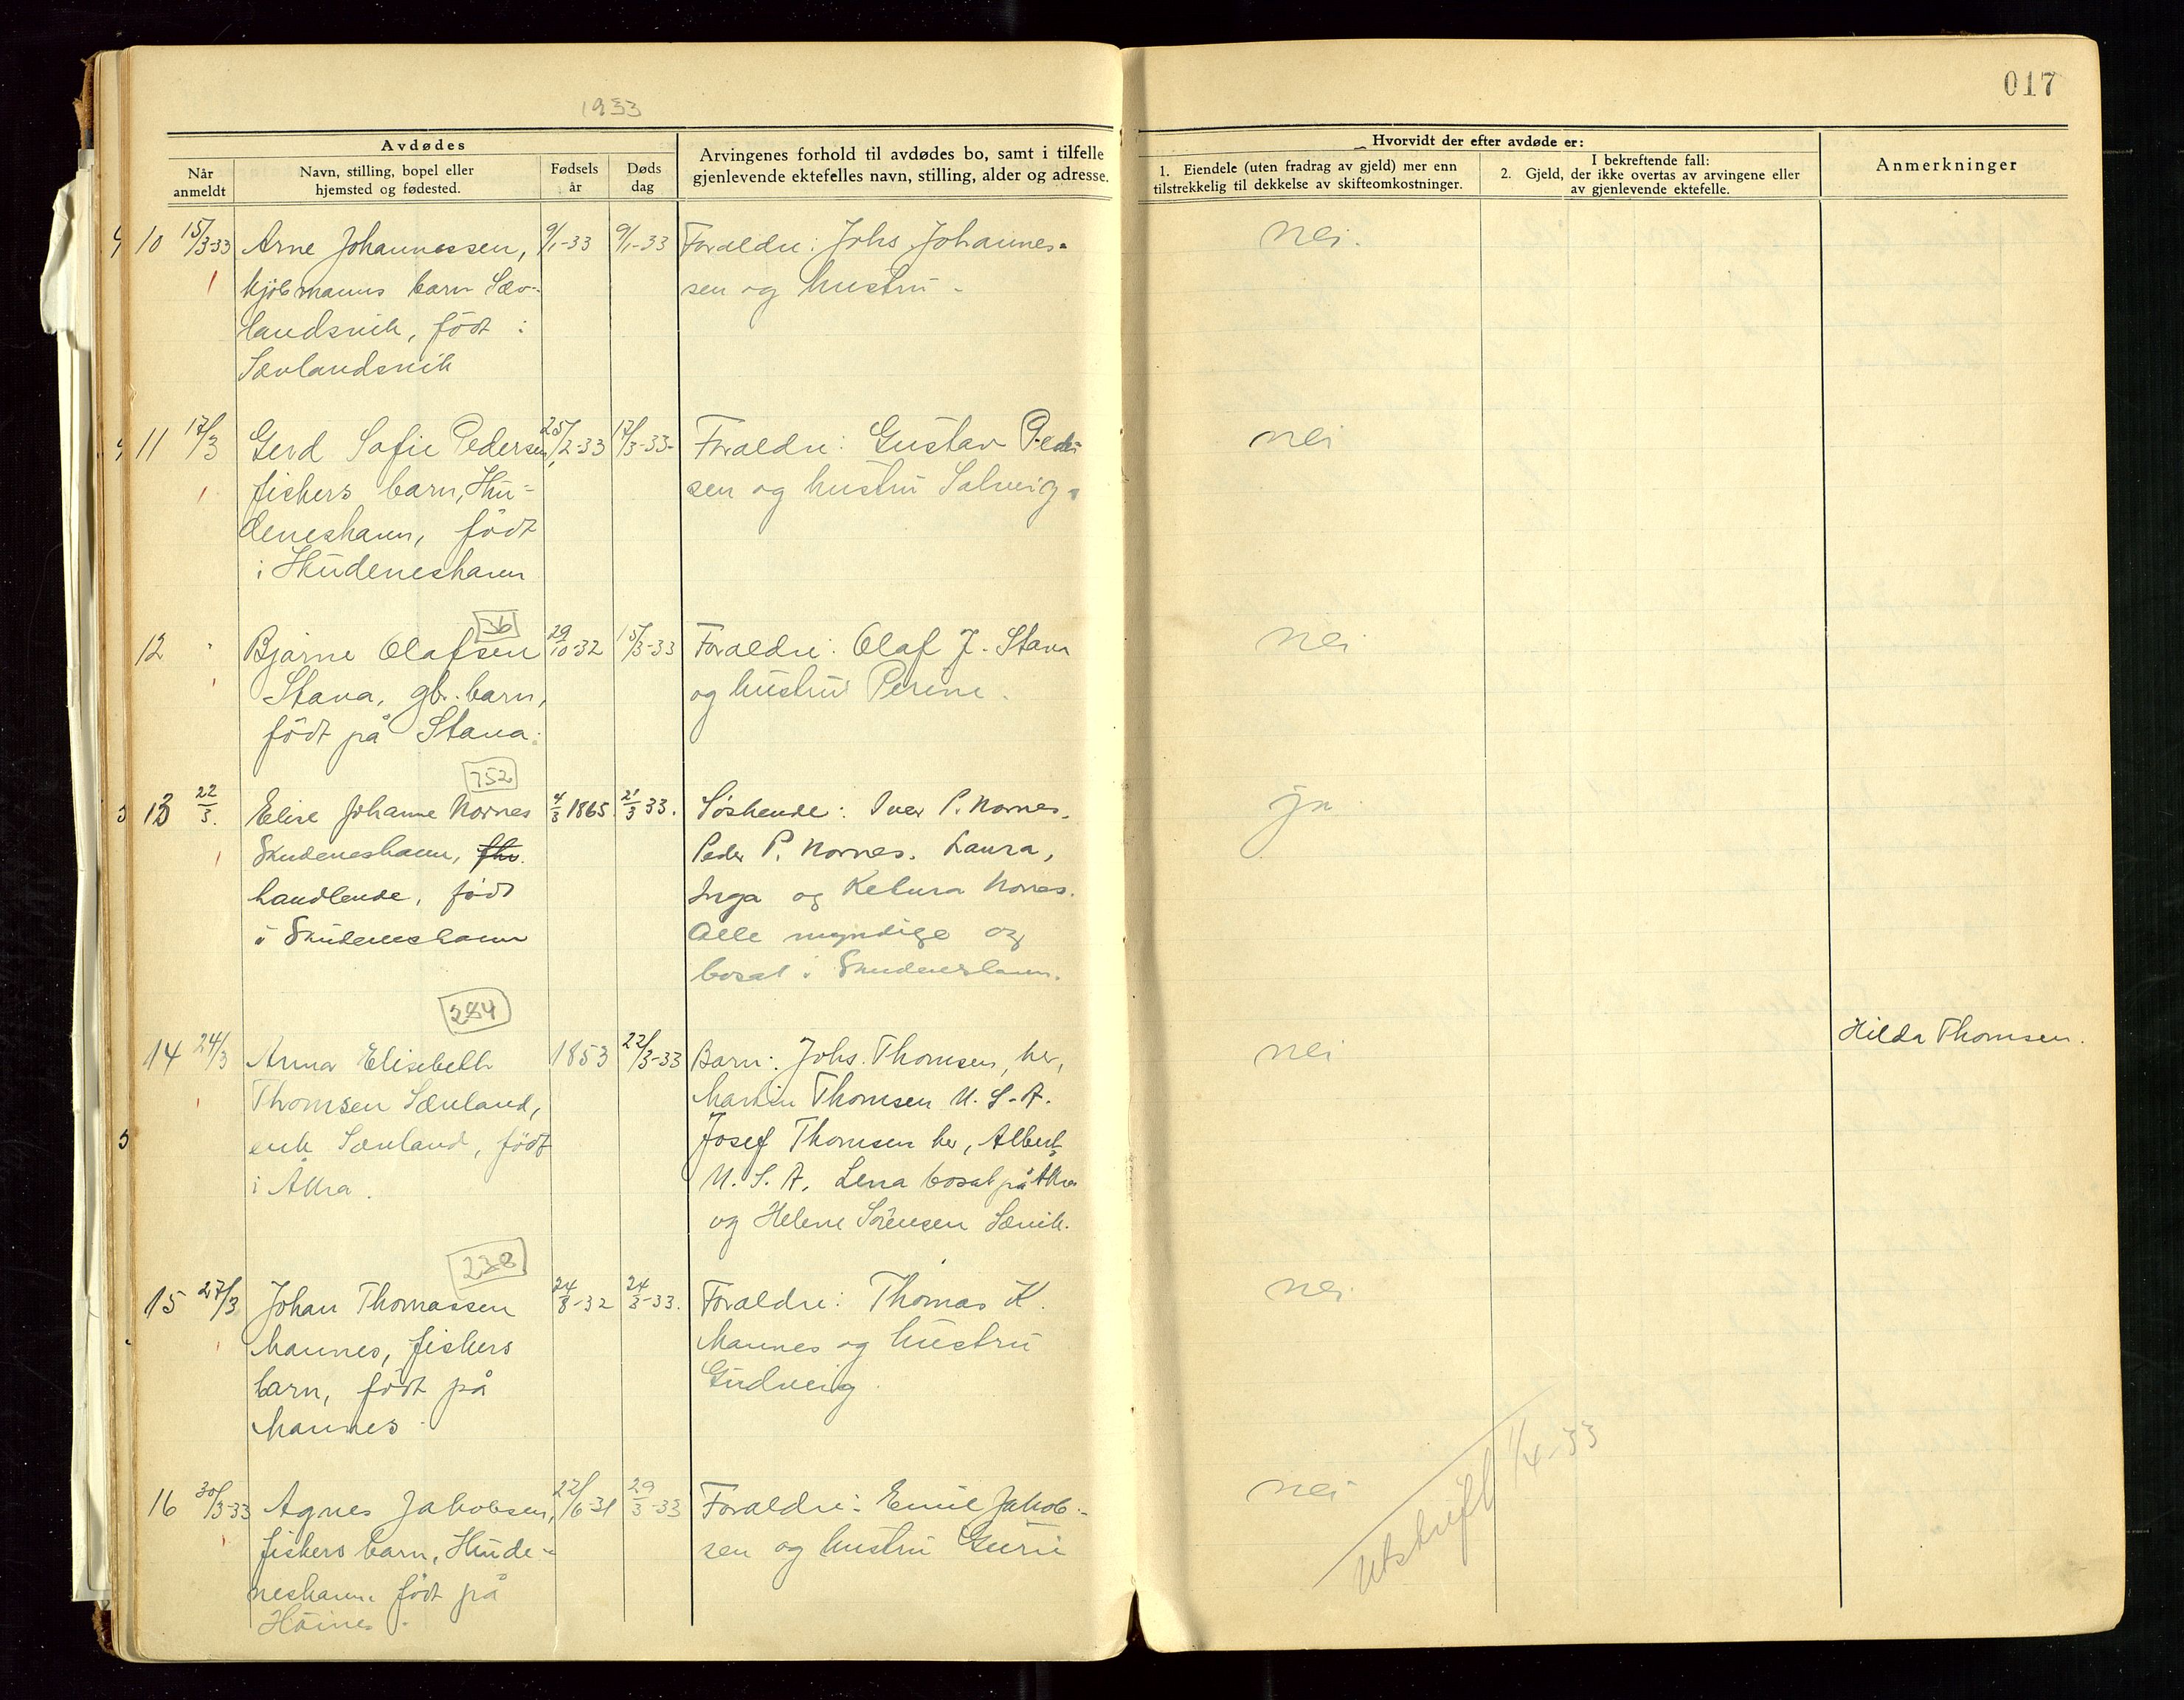 017
1933
Avdødes
Når anmeldt
Navn, stilling, bopel eller hjemsted og fødested.
Fødsels år
Døds dag
Arvingenes forhold til avdødes bo, samt i tilfelle gjenlevende ektefelles navn, stilling, alder og adresse.
Hvorvidt der efter avdøde er:
1. Eiendele (uten fradrag av gjeld) mer enn tilstrekkelig til dekkelse av skifteomkostninger.
I bekreftende fall:
2. Gjeld, der ikke overtas av arvingene eller av gjenlevende ektefelle.
Anmerkninger
10 15/3-33 Arne Johannessen, 9/1-33 9/1-33 Foraldre: Johs Johannes-
kjöbmanns barn Sæv- sen og hustru -
landsvik, födt i
Sævlandsvik
nei.
11 17/3 Gerd Sofie Pedersen, 25/2-33 17/3-33- Foraldre: Gustav Peder
fiskers barn, Sku- sen og hustru Solveig.
deneshavn, födt
i Skudeneshavn
nei
36
12 " Bjarne Olafsen 29/10-32 15/3-33 Foraldre: Olaf J. Stava
Stava, gb. barn, og hustru Perine.
födt på Stava.
nei
752
13 22/3. Elise Johanne Nornes 4/3 1865. 21/3 33. Søskende: Iver P. Nornes.
Skudeneshavn, Peder P. Nornes. Laura,
handlende, født Inga og Ketura Nornes.
i Skudeneshavn Alle myndige og
bosat i Skudeneshavn.
ja
284
14 24/3 Anna Elisebeth 1853 22/3-33 Barn: Johs. Thomsen, her,
Thomsen Sævland, Martin Thomsen U. S. A.
enke Sævland, födt Josef Thomsen her, Albert
i Åkra. U. S. A. Lena bosat på Åkra
og Helene Sörensen Sævik.
nei
Hilda Thomsen.
238
15 27/3 Johan Thomassen 24/8-32 24/3-33. Foraldre: Thomas K.
Mannes, fiskers Mannes og hustru
barn, födt på Gudveig.
Mannes.
nei
16 30/3-33 Agnes Jakobsen, 22/6-31 29/3-33 Foraldre: Emil Jakob-
fiskers barn, Skude- sen og hustru Guri
neshavn. födt på
Höines.
nei
Utskrift 1/4-33